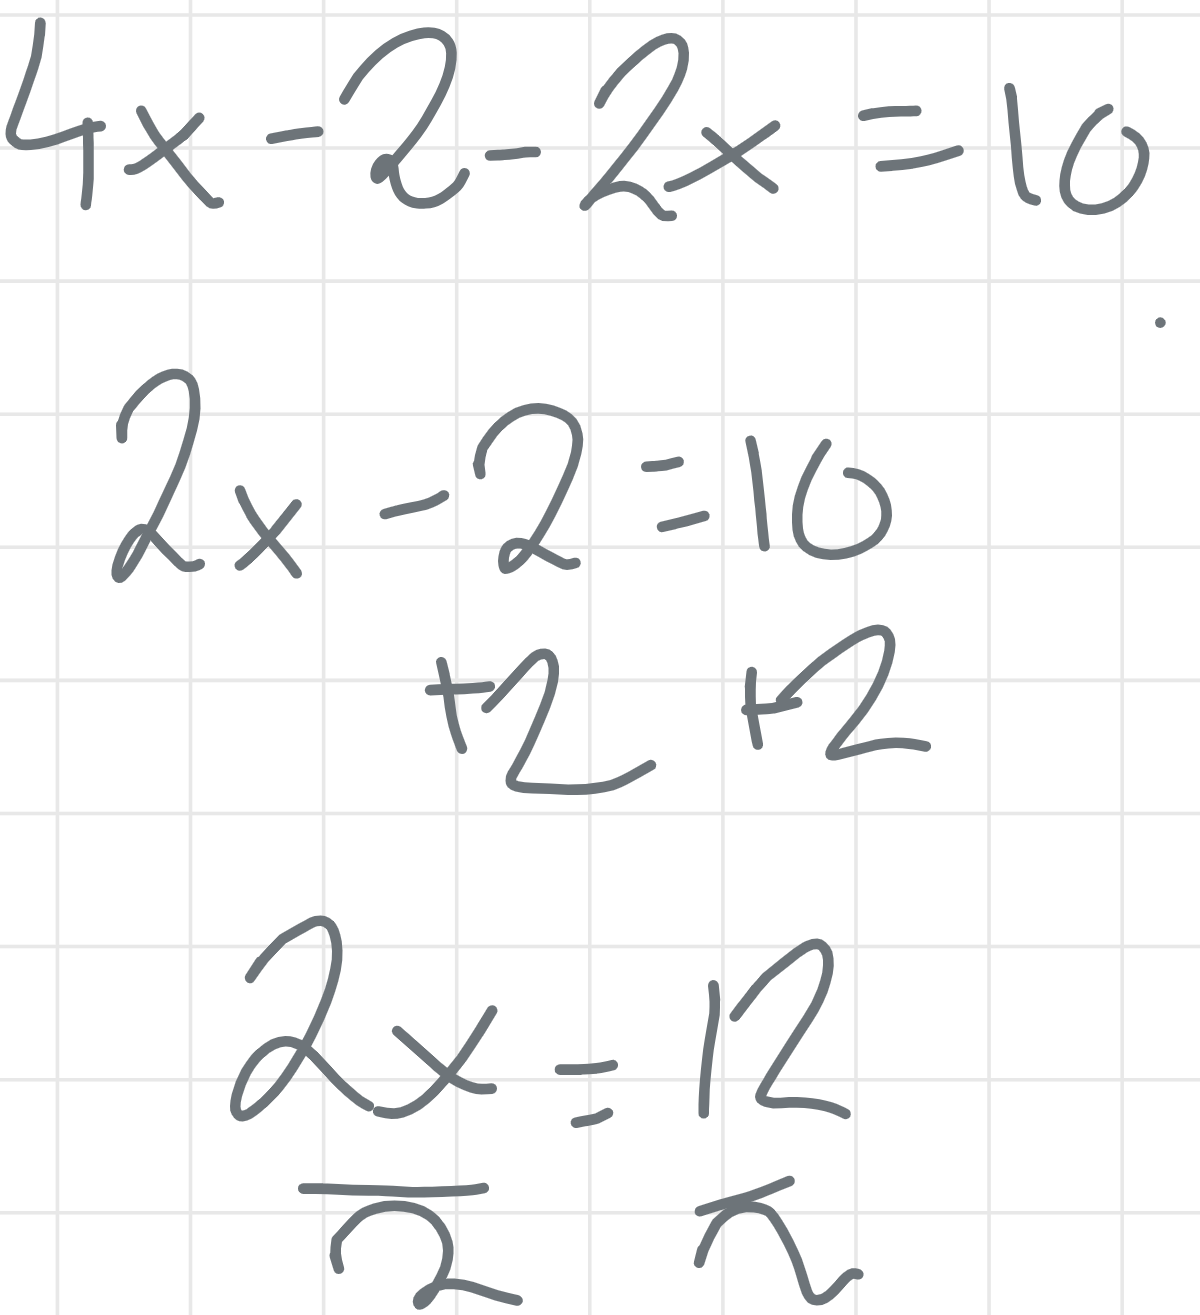 4x - 2 - 2x = 10
2x - 2 = 10
+2 +2
2x = 12
2 2